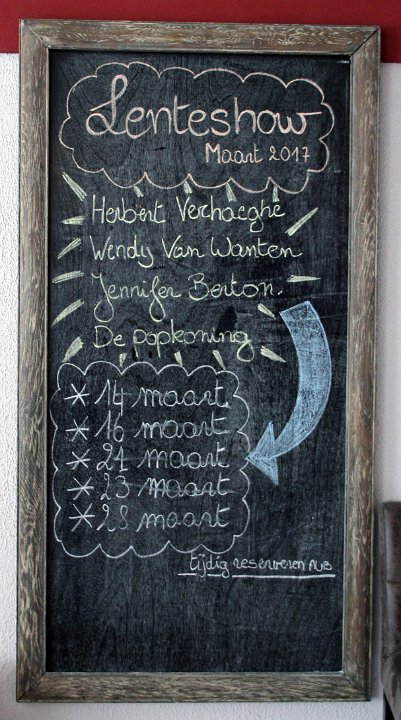 Lenteshow
Maart 2017
Herbert Verhaeghe
Wendy Van Wanten
Jennifer Berton.
De Popkoning
* 14 maart
* 16 maart
* 21 maart
* 23 maart
* 28 maart
tijdig reserveren AUB